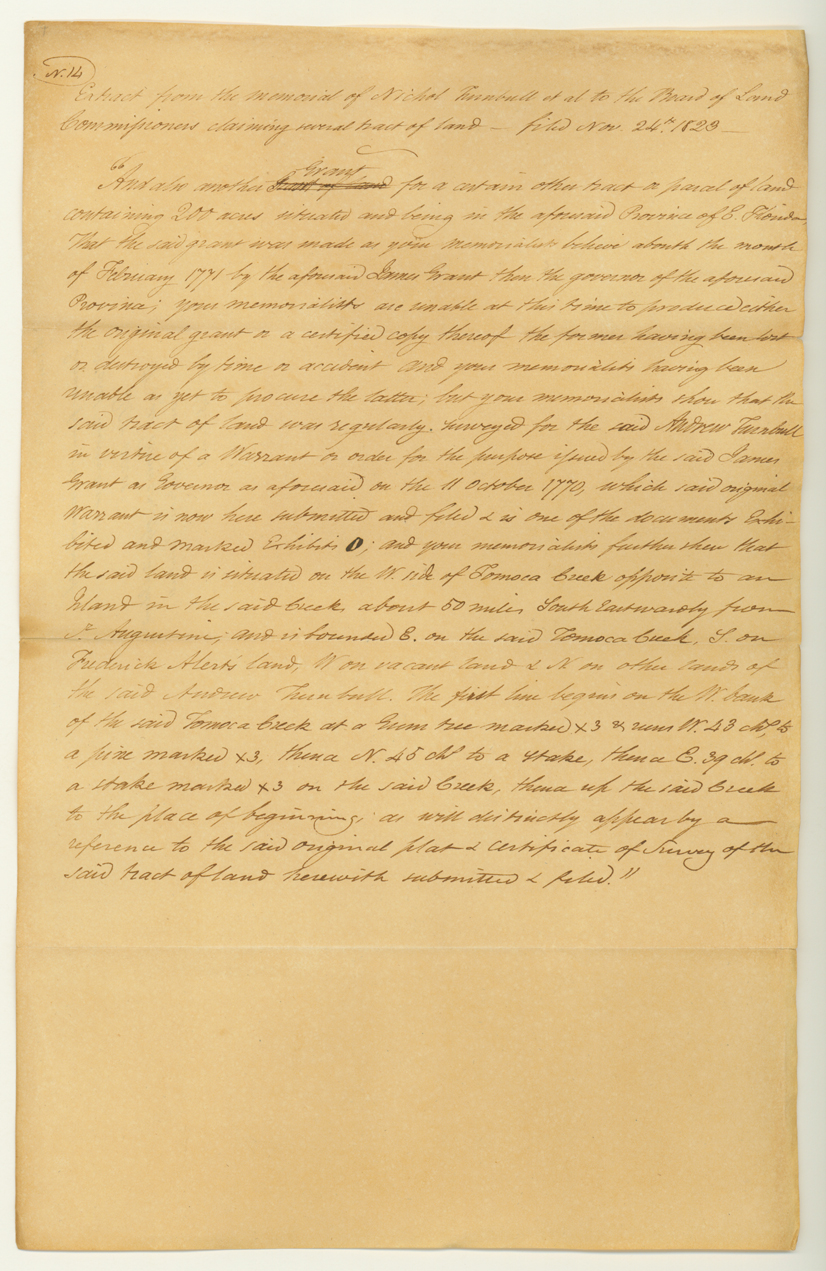 N. 14
Extract from the memorial of Nichol Turnbull et al to the Board of Land
Commissioners claiming several tract of land — filed Nov. 24th. 1823 —
"And also another Grant for a certain other tract or parcel of land
containing 200 acres situated and being in the aforesaid Province of E. Florida,
That the said grant was made as your memorialists believe about the month
of February 1771 by the aforesaid James Grant then the governor of the aforesaid
Province; your memorialists are unable at this time to produce either
the original grant or a certified copy thereof the former having been lost
or destroyed by time or accident and your memorialists having been
unable as yet to procure the latter; but your memorialists show that the
said tract of land was regularly surveyed for the said Andrew Turnbull
in virtue of a Warrant or order for the purpose issued by the said James
Grant as Governor as aforesaid on the 11 October 1770, which said original
Warrant is now here submitted and filed & is one of the documents Exhi-
bited and marked Exhibits O; and your memorialists further shew that
the said land is situated on the W. side of Tomoca Creek opposite to an
Island in the said Creek, about 50 miles South Eastwardly from
St. Augustine; and is bounded E. on the said Tomoca Creek, S. on
Frederick Alerts land, W on vacant land & N on other lands of
the said Andrew Turnbull. The first line begins on the W. bank
of the said Tomoca Creek at a Gum tree marked x3 & runs W. 43 chs. to
a pine marked x3, thence N. 45 chs to a stake, thence E. 39 chs. to
a stake marked x3 on the said Creek, thence up the said Creek
to the place of beginning; as will distinctly appear by a
reference to the said original plat & certificate of Survey of the
said tract of land herewith submitted & filed."